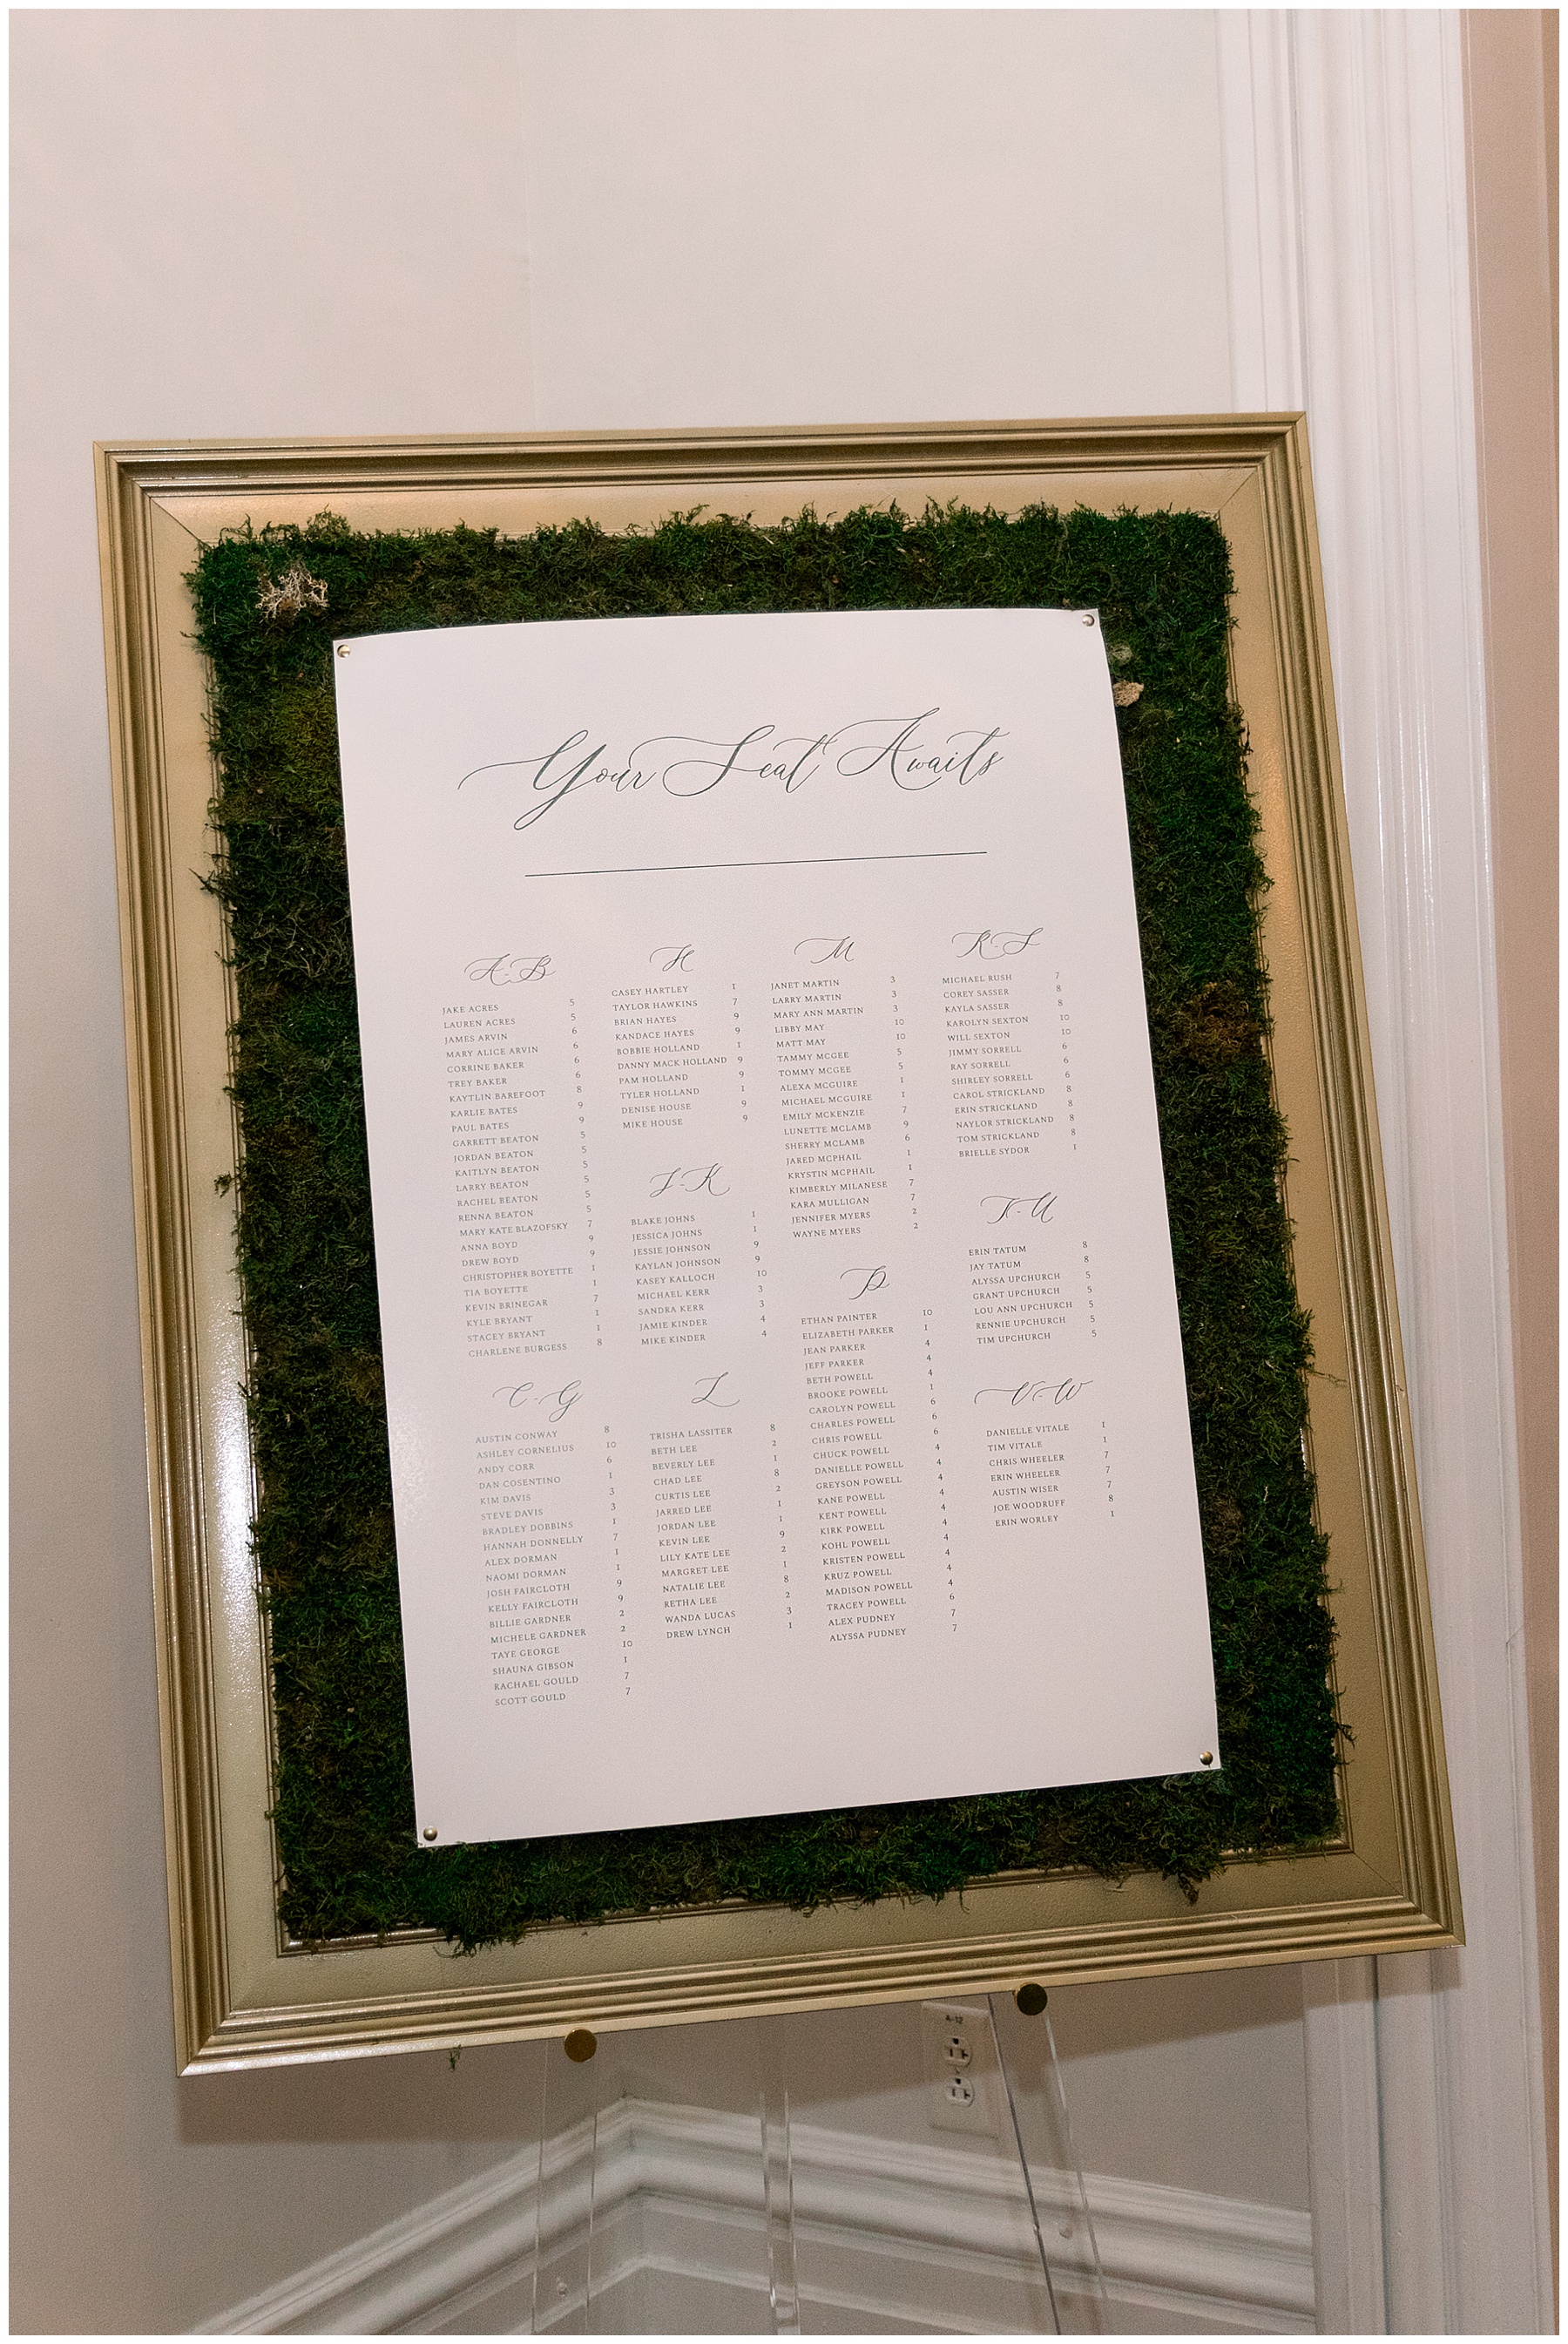 Your Seat Awaits
A-B
JAKE ACRES 5
LAUREN ACRES 5
JAMES ARVIN 6
MARY ALICE ARVIN 6
CORRINE BAKER 6
TREY BAKER 6
KAYTLIN BAREFOOT 8
KARLIE BATES 9
PAUL BATES 9
GARRETT BEATON 5
JORDAN BEATON 5
KAITLYN BEATON 5
LARRY BEATON 5
RACHEL BEATON 5
RENNA BEATON 5
MARY KATE BLAZOFSKY 7
ANNA BOYD 9
DREW BOYD 9
CHRISTOPHER BOYETTE 1
TIA BOYETTE 1
KEVIN BRINEGAR 7
KYLE BRYANT 1
STACEY BRYANT 1
CHARLENE BURGESS 8
C-G
AUSTIN CONWAY 8
ASHLEY CORNELIUS 10
ANDY CORR 6
DAN COSENTINO 1
KIM DAVIS 3
STEVE DAVIS 3
BRADLEY DOBBINS 1
HANNAH DONNELLY 7
ALEX DORMAN 1
NAOMI DORMAN 1
JOSH FAIRCLOTH 9
KELLY FAIRCLOTH 9
BILLIE GARDNER 2
MICHELE GARDNER 2
TAYE GEORGE 10
SHAUNA GIBSON 1
RACHAEL GOULD 7
SCOTT GOULD 7
H
CASEY HARTLEY 1
TAYLOR HAWKINS 7
BRIAN HAYES 9
KANDACE HAYES 9
BOBBIE HOLLAND 1
DANNY MACK HOLLAND 9
PAM HOLLAND 9
TYLER HOLLAND 1
DENISE HOUSE 9
MIKE HOUSE 9
J-K
BLAKE JOHNS 1
JESSICA JOHNS 1
JESSIE JOHNSON 9
KAYLAN JOHNSON 9
KASEY KALLOCH 10
MICHAEL KERR 3
SANDRA KERR 3
JAMIE KINDER 4
MIKE KINDER 4
L
TRISHA LASSITER 8
BETH LEE 2
BEVERLY LEE 1
CHAD LEE 8
CURTIS LEE 2
JARRED LEE 1
JORDAN LEE 1
KEVIN LEE 9
LILY KATE LEE 2
MARGRET LEE 1
NATALIE LEE 8
RETHA LEE 2
WANDA LUCAS 3
DREW LYNCH 1
M
JANET MARTIN 3
LARRY MARTIN 3
MARY ANN MARTIN 3
LIBBY MAY 10
MATT MAY 10
TAMMY MCGEE 5
TOMMY MCGEE 5
ALEXA MCGUIRE 1
MICHAEL MCGUIRE 1
EMILY MCKENZIE 7
LUNETTE MCLAMB 9
SHERRY MCLAMB 6
JARED MCPHAIL 1
KRYSTIN MCPHAIL 1
KIMBERLY MILANESE 7
KARA MULLIGAN 7
JENNIFER MYERS 2
WAYNE MYERS 2
P
ETHAN PAINTER 10
ELIZABETH PARKER 1
JEAN PARKER 4
JEFF PARKER 4
BETH POWELL 4
BROOKE POWELL 1
CAROLYN POWELL 6
CHARLES POWELL 6
CHRIS POWELL 6
CHUCK POWELL 4
DANIELLE POWELL 4
GREYSON POWELL 4
KANE POWELL 4
KENT POWELL 4
KIRK POWELL 4
KOHL POWELL 4
KRISTEN POWELL 4
KRUZ POWELL 4
MADISON POWELL 4
TRACEY POWELL 6
ALEX PUDNEY 7
ALYSSA PUDNEY 7
R-S
MICHAEL RUSH 7
COREY SASSER 8
KAYLA SASSER 8
KAROLYN SEXTON 10
WILL SEXTON 10
JIMMY SORRELL 6
RAY SORRELL 6
SHIRLEY SORRELL 6
CAROL STRICKLAND 8
ERIN STRICKLAND 8
NAYLOR STRICKLAND 8
TOM STRICKLAND 8
BRIELLE SYDOR 1
T-U
ERIN TATUM 8
JAY TATUM 8
ALYSSA UPCHURCH 5
GRANT UPCHURCH 5
LOU ANN UPCHURCH 5
RENNIE UPCHURCH 5
TIM UPCHURCH 5
V-W
DANIELLE VITALE 1
TIM VITALE 1
CHRIS WHEELER 7
ERIN WHEELER 7
AUSTIN WISER 7
JOE WOODRUFF 8
ERIN WORLEY 1
A-12